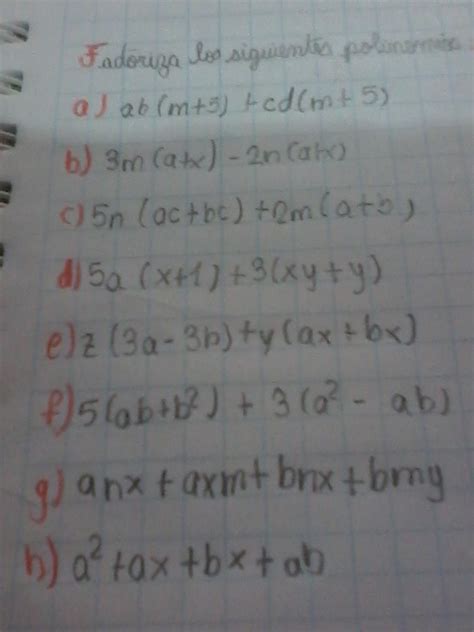 Factoriza los siguientes polinomios
a) ab(m+5) + cd(m+5)
b) 3m(a+x) - 2n(a+x)
c) 5n (ac+bc) + 2m(a+b)
d) 5a (x+1) + 3(xy+y)
e) z (3a-3b) + y(ax+bx)
f) 5(ab+b²) + 3(a² - ab)
g) anx + axm + bnx + bmy
h) a² + ax + bx + ab